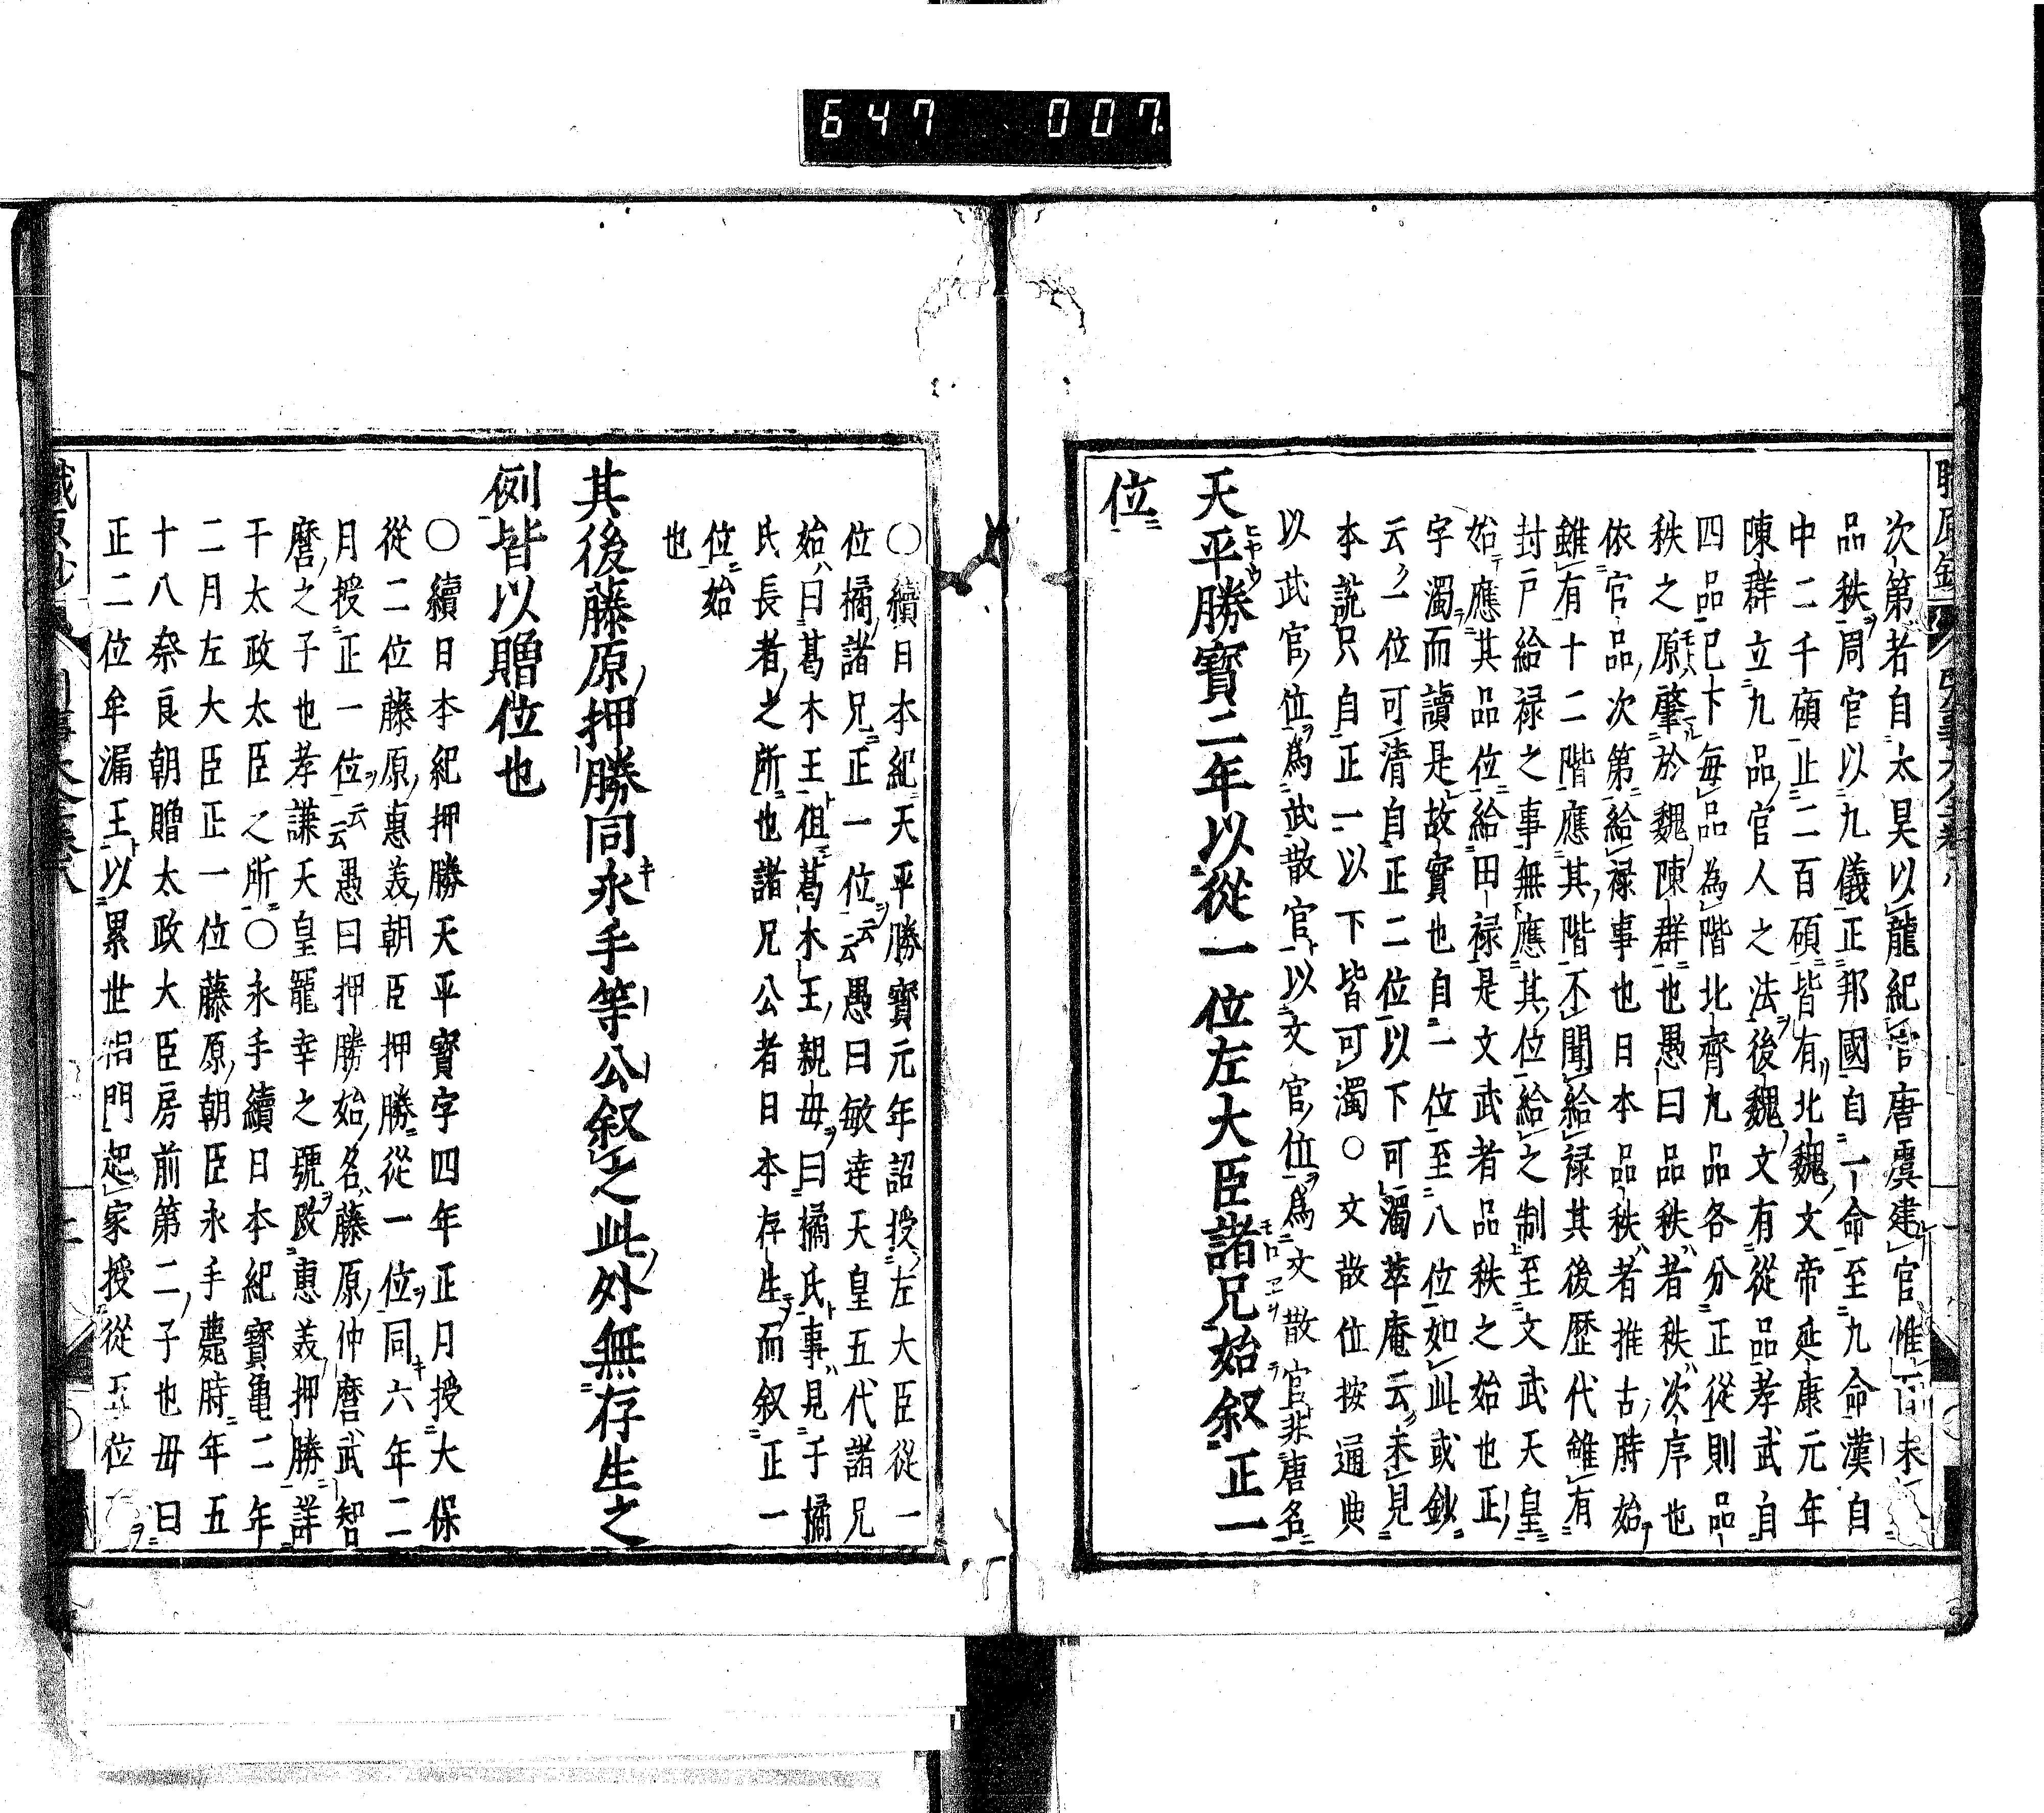 647 007
次第者自太昊以龍紀官唐虞建官惟百未
品秩周官以九儀正邦國自一命至九命漢自
中二千碩止二百碩皆有北魏文帝延康元年
陳群立九品官人之法後魏文有從品孝武自
四品已下每品為階北齊九品各分正從則品
秩之原肇於魏陳群也愚曰品秩者秩次序也
依官品次第給禄事也日本品秩者推古時始
雖有十二階應其階不聞給禄其後歴代雖有
封戸給禄之事無應其位給之制至文武天皇
始應其品位給田禄是文武者品秩之始也正
字濁而讀是故實也自一位至八位如此或鈔
云一位可清自正二位以下可濁萃庵云未見
本説只自正一以下皆可濁○文散位按通典
以武官位為武散官以文官位為文散官非唐名
天平勝寶二年以從一位左大臣諸兄始叙正一
位
○續日本紀天平勝寶元年詔授左大臣從一
位橘諸兄正一位云云愚曰敏達天皇五代諸兄
始曰葛木王但葛木王親毋曰橘氏事見于橘
氏長者之所也諸兄公者日本存生而叙正一
位始
也
其後藤原押勝同永手等公叙之此外無存生之
例皆以贈位也
○續日本紀押勝天平寳字四年正月授大保
從二位藤原惠美朝臣押勝從一位同六年二
月授正一位云云愚曰押勝始名藤原仲麿武智
麿之子也孝謙天皇寵幸之號改惠美押勝詳
于太政太臣之所○永手續日本紀寳亀二年
二月左大臣正一位藤原朝臣永手薨時年五
十八奈良朝贈太政大臣房前第二子也毋曰
正二位牟漏王以累世相門起家授從五位
職原抄